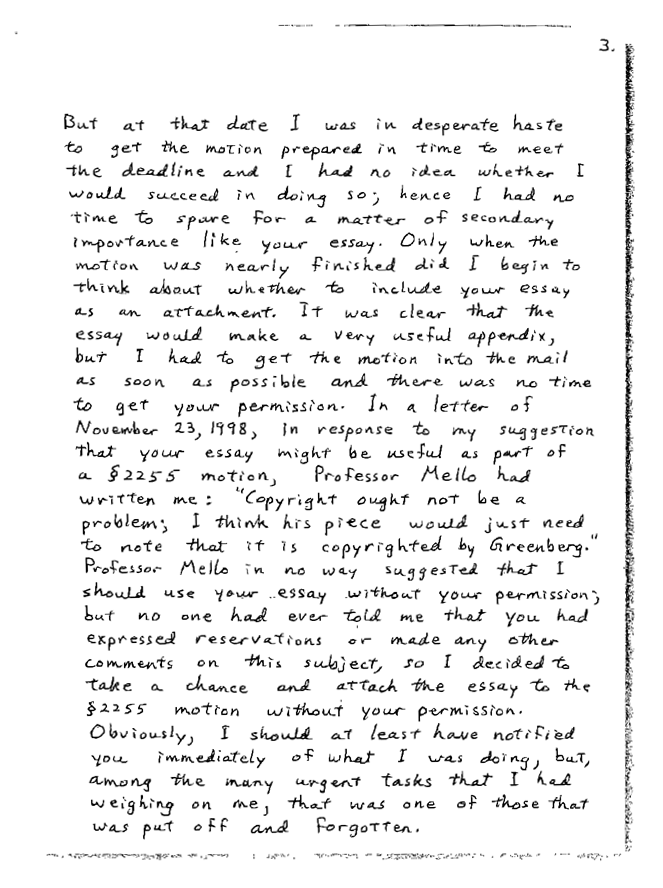 3.
But at that date I was in desperate haste
to get the motion prepared in time to meet
the deadline and I had no idea whether I
would succeed in doing so; hence I had no
time to spare for a matter of secondary
importance like your essay. Only when the
motion was nearly finished did I begin to
think about whether to include your essay
as an attachment. It was clear that the
essay would make a very useful appendix,
but I had to get the motion into the mail
as soon as possible and there was no time
to get your permission. In a letter of
November 23, 1998, in response to my suggestion
that your essay might be useful as part of
a §2255 motion, Professor Mello had
written me: "Copyright ought not be a
problem; I think his piece would just need
to note that it is copyrighted by Greenberg."
Professor Mello in no way suggested that I
should use your essay without your permission;
but no one had ever told me that you had
expressed reservations or made any other
comments on this subject, so I decided to
take a chance and attach the essay to the
§2255 motion without your permission.
Obviously, I should at least have notified
you immediately of what I was doing, but,
among the many urgent tasks that I had
weighing on me, that was one of those that
was put off and forgotten.